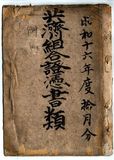 昭和十六年度 拾月分
共濟組合證憑書類